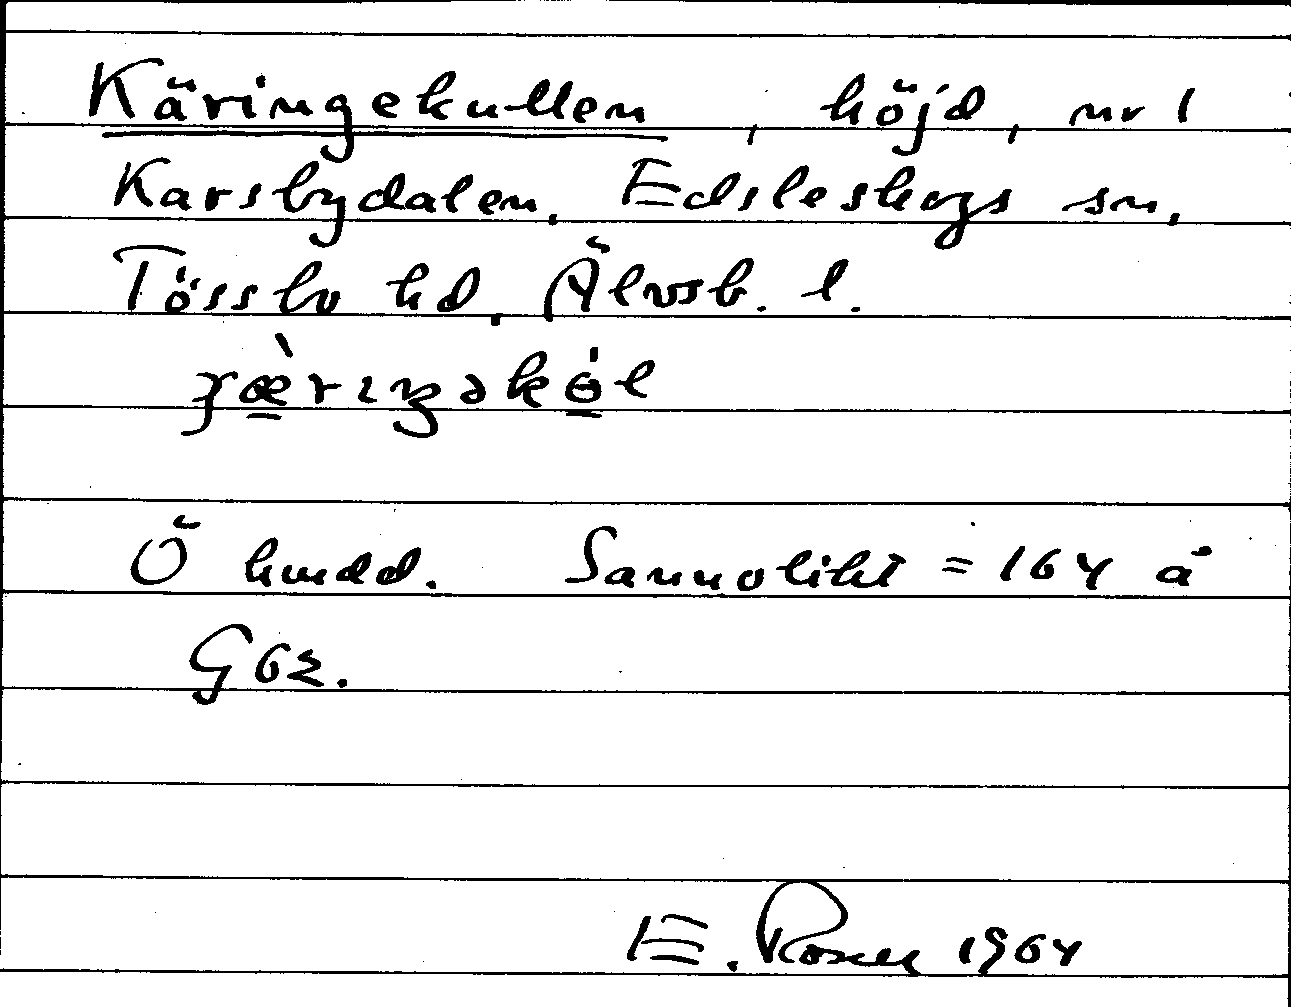 Käringekullen, höjd, nr 1
Karsbydalen, Edsleskogs sn,
Tössbo hd, Älvsb. l.
Ö hmdd. Sannolikt = 164 å
G6z.
E. Rosell 1964